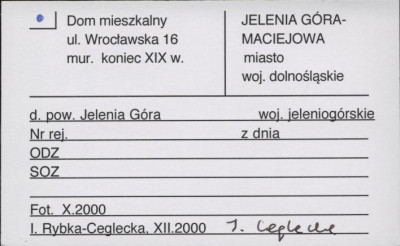 Dom mieszkalny
ul. Wrocławska 16
mur. koniec XIX w.
JELENIA GÓRA-
MACIEJOWA
miasto
woj. dolnośląskie
d. pow. Jelenia Góra woj. jeleniogórskie
Nr rej. z dnia
ODZ
SOZ
Fot. X.2000
I. Rybka-Ceglecka, XII.2000 I. Ceglecka